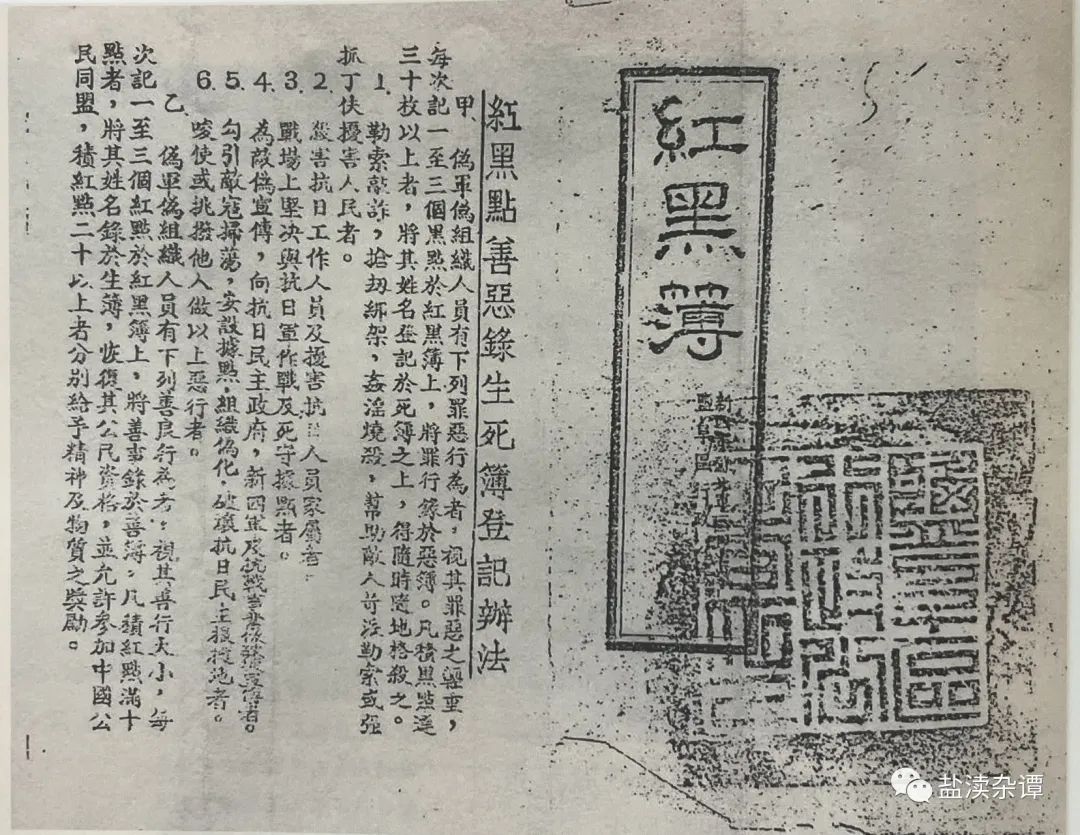 紅黑簿
盐阜區行政
紅黑點善惡錄生死簿登記辦法
甲、偽軍偽組織人員有下列罪惡行為者，視其罪惡之輕重，
每次記一至三個黑點於紅黑簿上，將罪行錄於惡簿。凡積黑點達
三十枚以上者，將其姓名登記於死簿之上，得隨時隨地格殺之。
1. 勒索敲詐，搶刼綁架，姦淫燒殺，幫助敵人苛派勒索或强
抓丁伕擾害人民者。
2. 殺害抗日工作人員及擾害抗日人員家屬者
3. 戰場上堅决與抗日軍作戰及死守據點者。
4. 為敵偽宣傳，向抗日民主政府，新四軍及抗戰
5. 勾引敵寇掃蕩，安設據點，組織偽化，破壞抗日民主根據地者。
6. 唆使或挑撥他人做以上惡行者。
乙、偽軍偽組織人員有下列善良行為者，視其善行大小，每
次記一至三個紅點於紅黑簿上，將善事錄於善簿，凡積紅點滿十
點者，將其姓名錄於生簿，恢復其公民資格，並允許參加中國公
民同盟，積紅點二十以上者分别給予精神及物質之獎勵。
盐渎杂谭